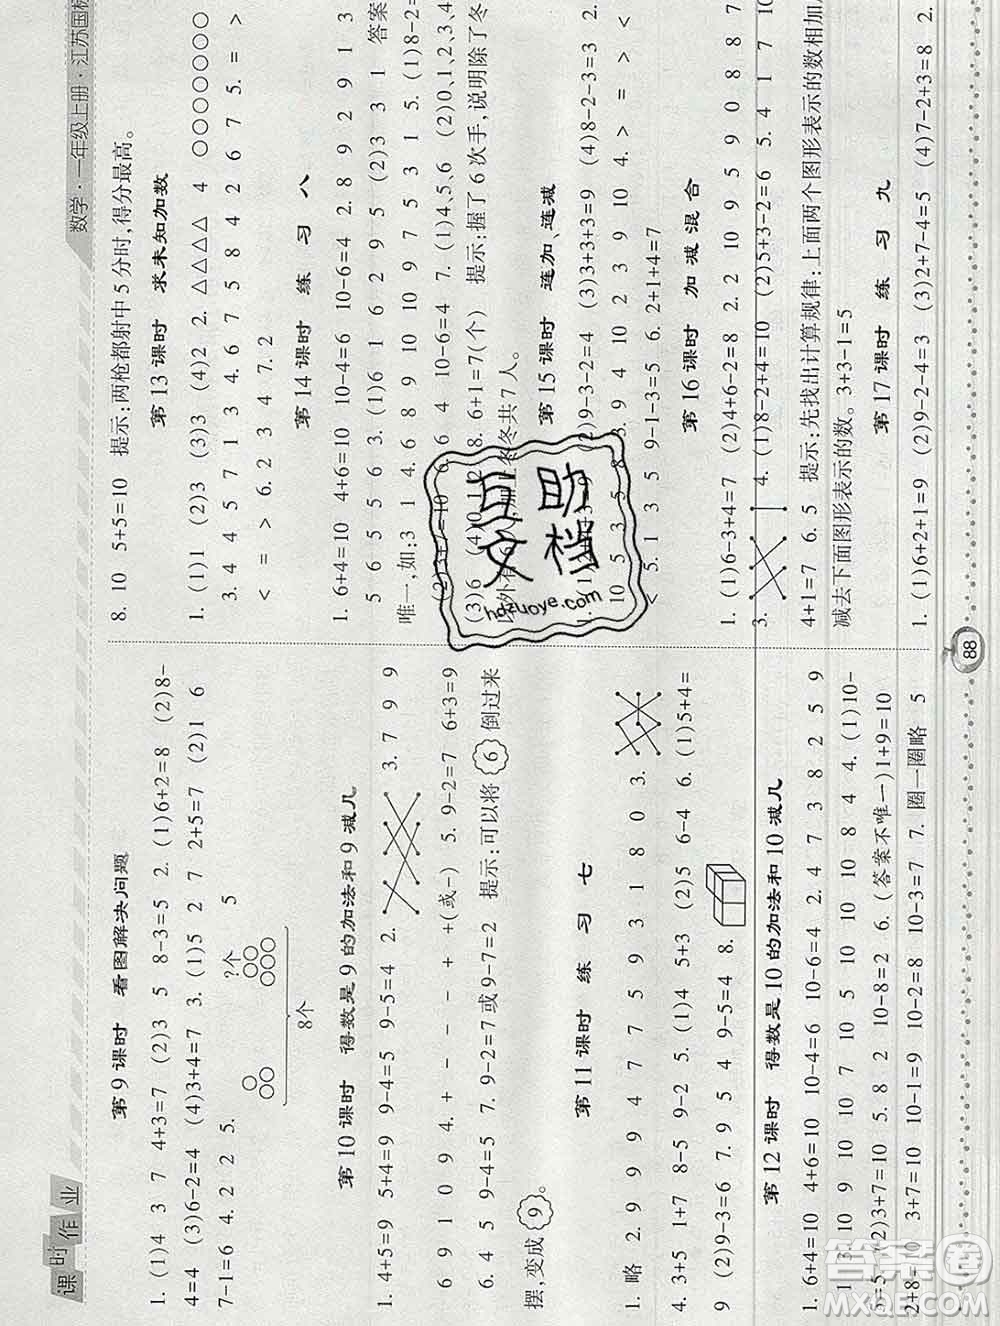 课时作业
数学·一年级上册·江苏国标
第9课时 看图解决问题
1. (1)4 3 7 4+3=7 (2)3 5 8-3=5 2. (1)6+2=8 (2)8-
4=4 (3)6-2=4 (4)3+4=7 3. (1)5 2 7 2+5=7 (2)1 6
7-1=6 4. 2 2 5. 5
?个
8个
第10课时 得数是9的加法和9减几
1. 4+5=9 5+4=9 9-4=5 9-5=4 2. 3. 7 9 9
6 9 1 0 9 4. + - - - + +(或-) 5. 9-2=7 6+3=9
6. 4 5 9-4=5 7. 9-2=7或9-7=2 提示:可以将 6 倒过来
摆,变成 9 。
第11课时 练习七
1. 略 2. 9 9 9 4 7 7 5 9 3 1 8 0 3.
4. 3+5 1+7 8-5 9-2 5. (1)4 5+3 (2)5 6-4 6. (1)5+4=
9 (2)9-3=6 7. 9 5 4 9-5=4 8.
第12课时 得数是10的加法和10减几
1. 6+4=10 4+6=10 10-4=6 10-6=4 2. 4 7 3 8 2 5 9
1 10 9 10 10 7 10 5 10 10 10 8 4 4. (1)10-
5=5 (2)3+7=10 5. 8 2 10-8=2 6. (答案不唯一)1+9=10
2+8=10 3+7=10 10-1=9 10-2=8 10-3=7 7. 圈一圈略 5
8. 10 5+5=10 提示:两枪都射中5分时,得分最高。
第13课时 求未知加数
1. (1)1 (2)3 (3)3 (4)2 2. △△△△ 4 ○○○○○○○
3. 4 4 5 7 1 3 4. 6 7 5 8 4 2 6 7 5. = >
< = > 6. 2 3 4 7. 2
第14课时 练习八
1. 6+4=10 4+6=10 10-4=6 10-6=4 2. 8 9 2 9 1 3
5 6 5 5 6 3. (1)6 1 6 2 9 5 (2)3 3 1 答案
唯一,如:3 1 4. 6 8 9 10 10 9 7 5 3 1 5. (1)8-2=
(2)3+7=10 6. 6 4 10-6=4 7. (1)4、5、6 (2)0、1、2、3、4
(3)6 (4)0 1 2 8. 6+1=7(个) 提示:握了6次手,说明除了冬
冬外有6人,冬冬共7人。
第15课时 连加、连减
(2)9-3-2=4 (3)3+3+3=9 (4)8-2-3=3 2.
10 5 3 5 8 3. 9 4 10 2 3 9 10 4. > = > <
< 5. 1 3 5 9-1-3=5 6. 2+1+4=7
第16课时 加减混合
1. (1)6-3+4=7 (2)4+6-2=8 2. 2 10 9 5 9 0 8 8 7
3. 4. (1)8-2+4=10 (2)5+3-2=6 5. 4 1 7 10
4+1=7 6. 5 提示:先找出计算规律:上面两个图形表示的数相加,
减去下面图形表示的数。3+3-1=5
第17课时 练习九
1. (1)6+2+1=9 (2)9-2-4=3 (3)2+7-4=5 (4)7-2+3=8 2.
88
互助文档
hdzuoye.com
答案圈
MXQE.COM